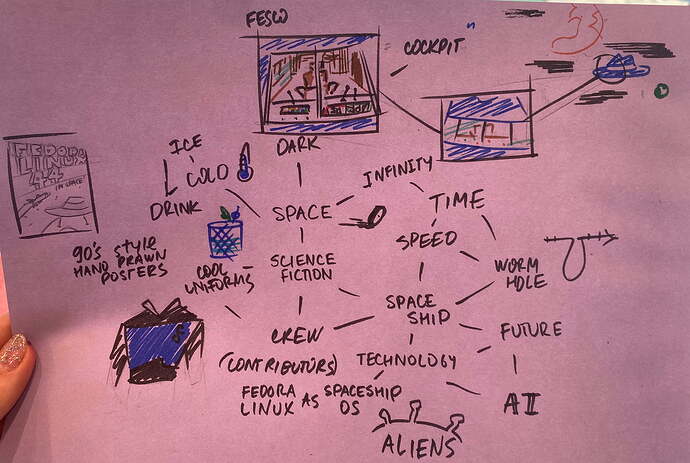 FESCO
COCKPIT"
DARK
ICE
COLD
DRINK
INFINITY
TIME
SPACE
SPEED
FEDORA
LINUX
44
IN SPACE
90's STYLE
HAND DRAWN
POSTERS
COOL
UNIFORMS
SCIENCE
FICTION
WORM
HOLE
SPACE
SHIP
CREW
(CONTRIBUTORS)
FUTURE
TECHNOLOGY
FEDORA AS SPACESHIP
LINUX OS
AI
ALIENS